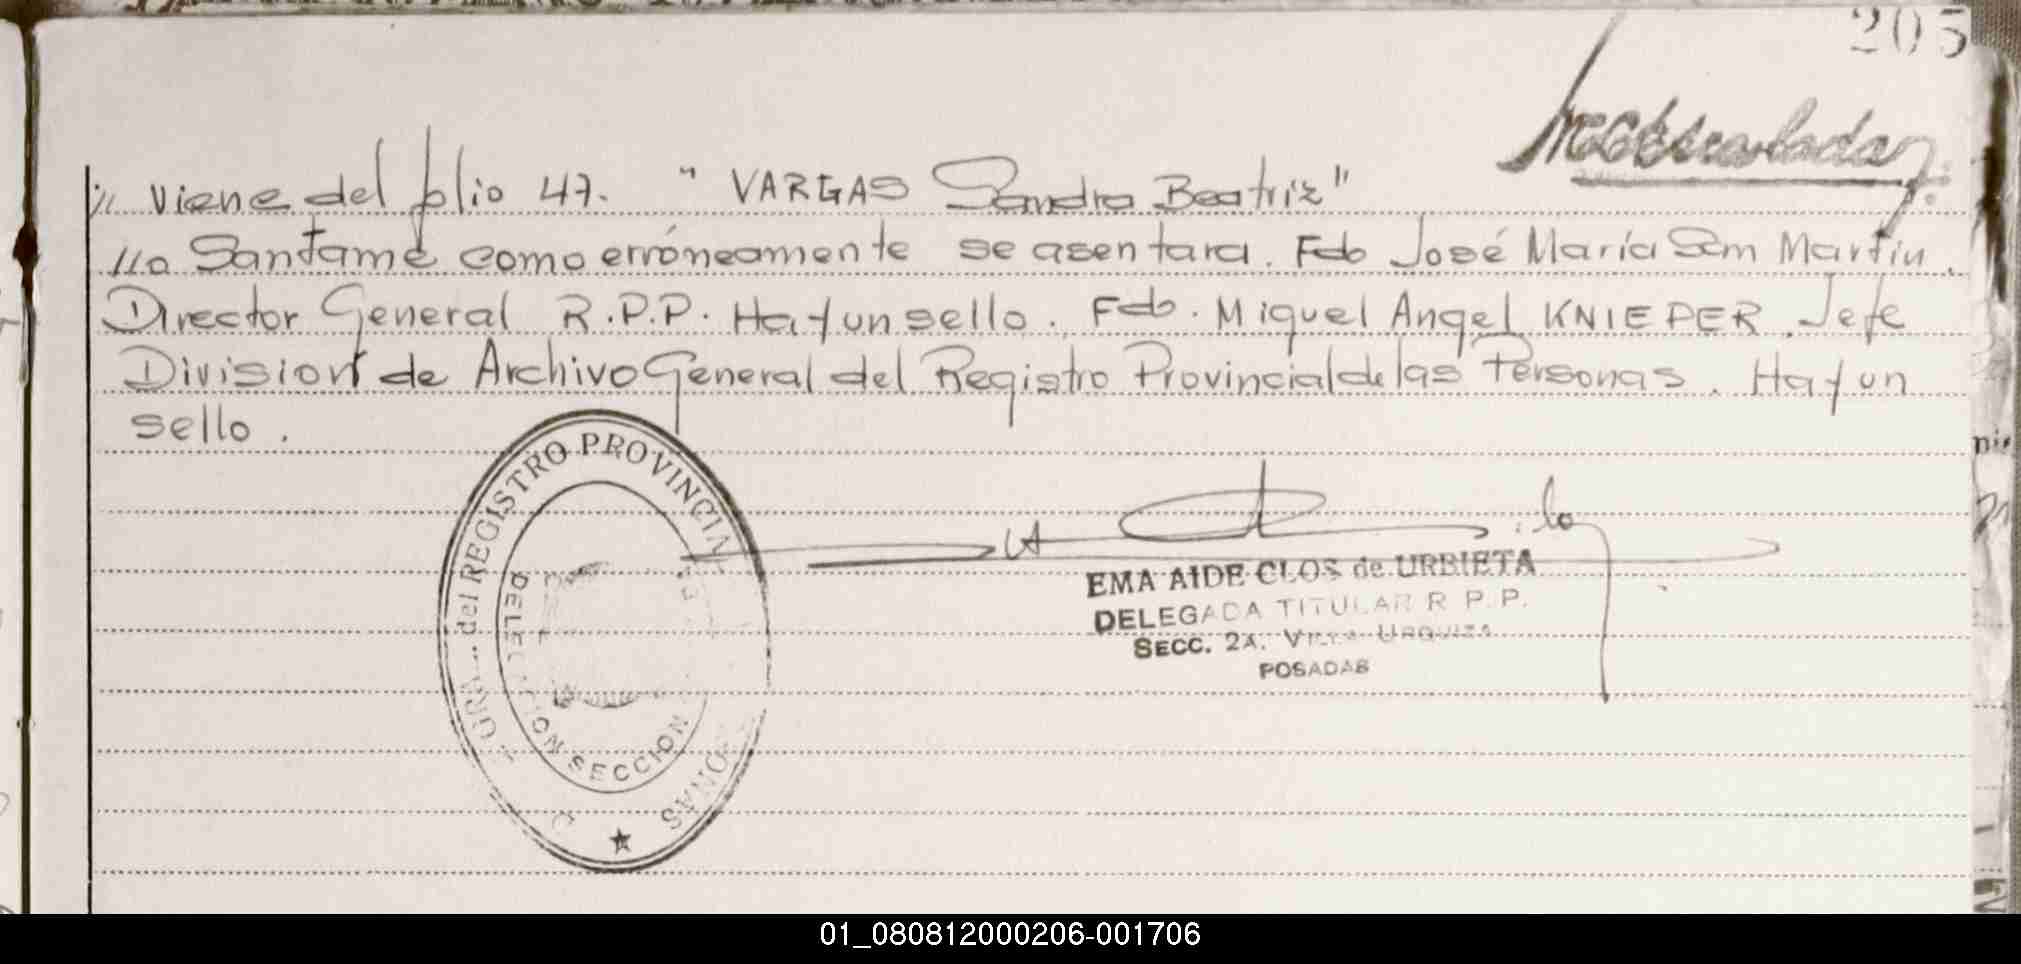 205
// viene del folio 47. " VARGAS Sandra Beatriz"
//a Santamé como erróneamente se asentara. Fdo José María San Martin.
Director General R.P.P. Hay un sello. Fdo. Miguel Angel KNIEPER. Jefe
Division de Archivo General del Registro Provincial de las Personas. Hay un
sello.
del REGISTRO PROVINCIAL
DELEGACION SECCION
EMA AIDE CLOS de URBIETA
DELEGADA TITULAR R P. P.
SECC. 2A. VILLA URQUIZA
POSADAS
01_080812000206-001706